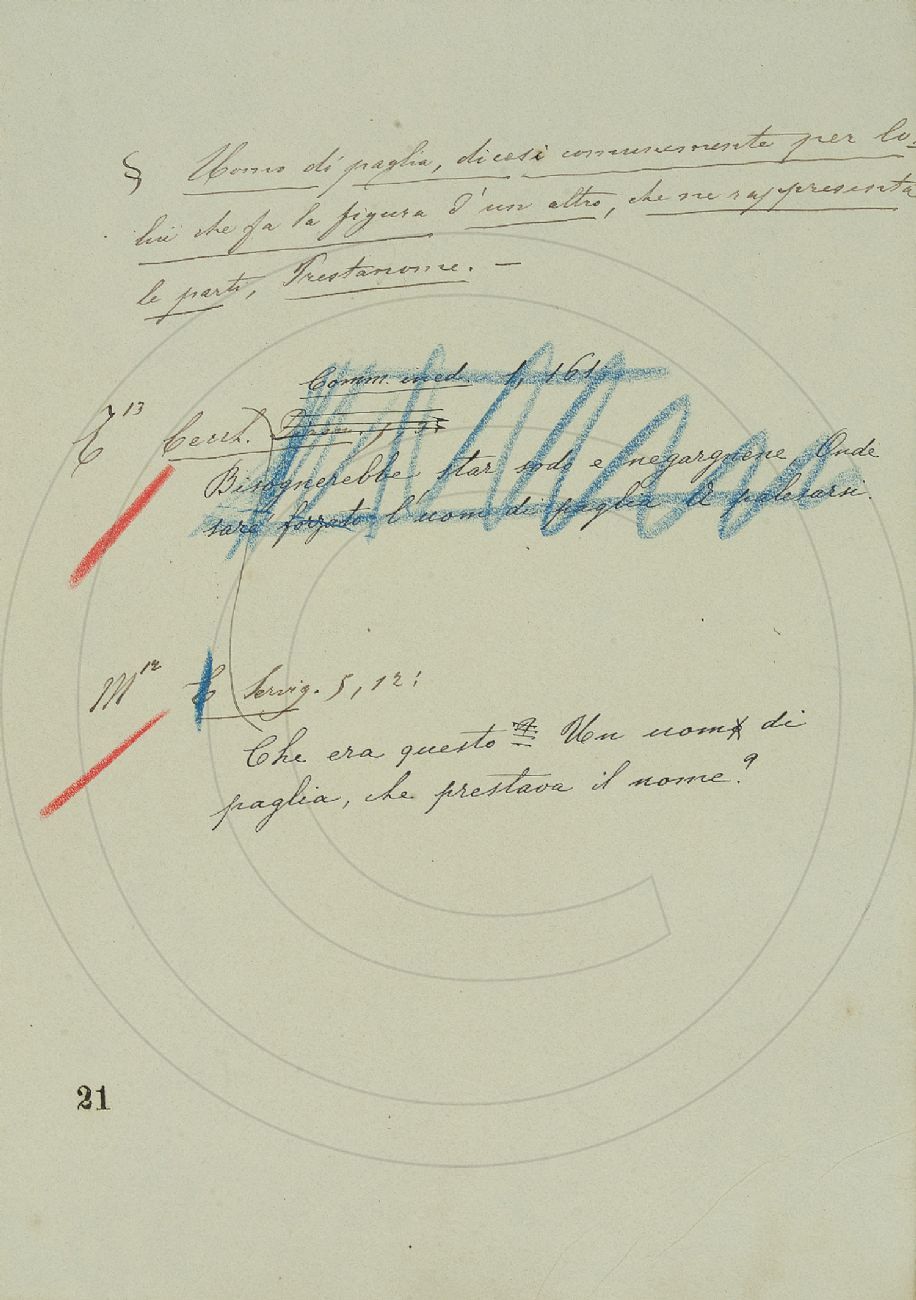 § Uomo di paglia, dicesi comunemente per co-
lui che fa la figura d'un altro, che ne rappresenta
le parti, Prestanome. –
Comm. ined. 1, 161
T 13 Cecch.
Bisognerebbe star sodo e negargnene Onde
sarà forzato l'uom di paglia A palesarsi.
M 12 E Servig. 5, 12:
Che era questo Un uom di
paglia, che prestava il nome?
21